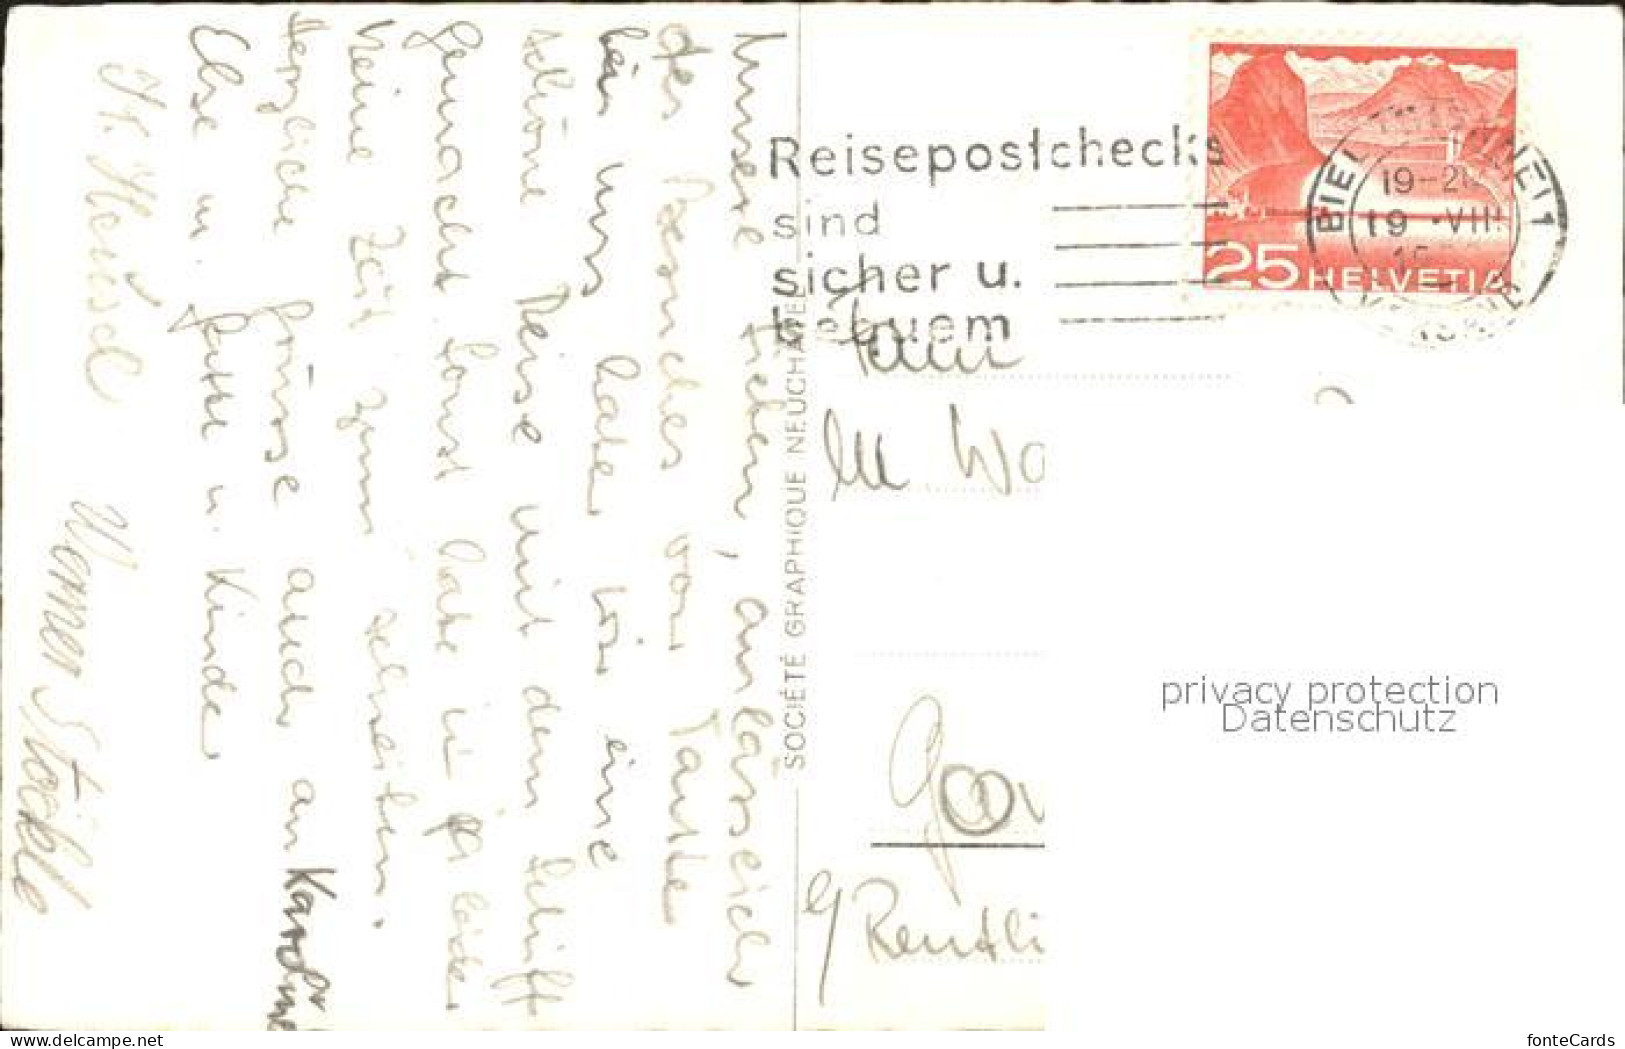 Unsere lieben, anlässlich
des Besuches von Tante
bei uns haben wir eine
schöne Reise mit dem Schiff
gemacht. Sonst habe ich ja leider
keine Zeit zum schreiben.
Herzliche Grüsse auch an Karoline
Else u. Gatte u. Kinder
Fr. Heusel
Werner Stöckle
SOCIÉTÉ GRAPHIQUE NEUCHATEL
Reisepostchecks
sind
sicher u.
bequem
25 HELVETIA
BIEL
19-20
19 VIII
Fam
M Wa
Reutli
privacy protection
Datenschutz
fonteCards